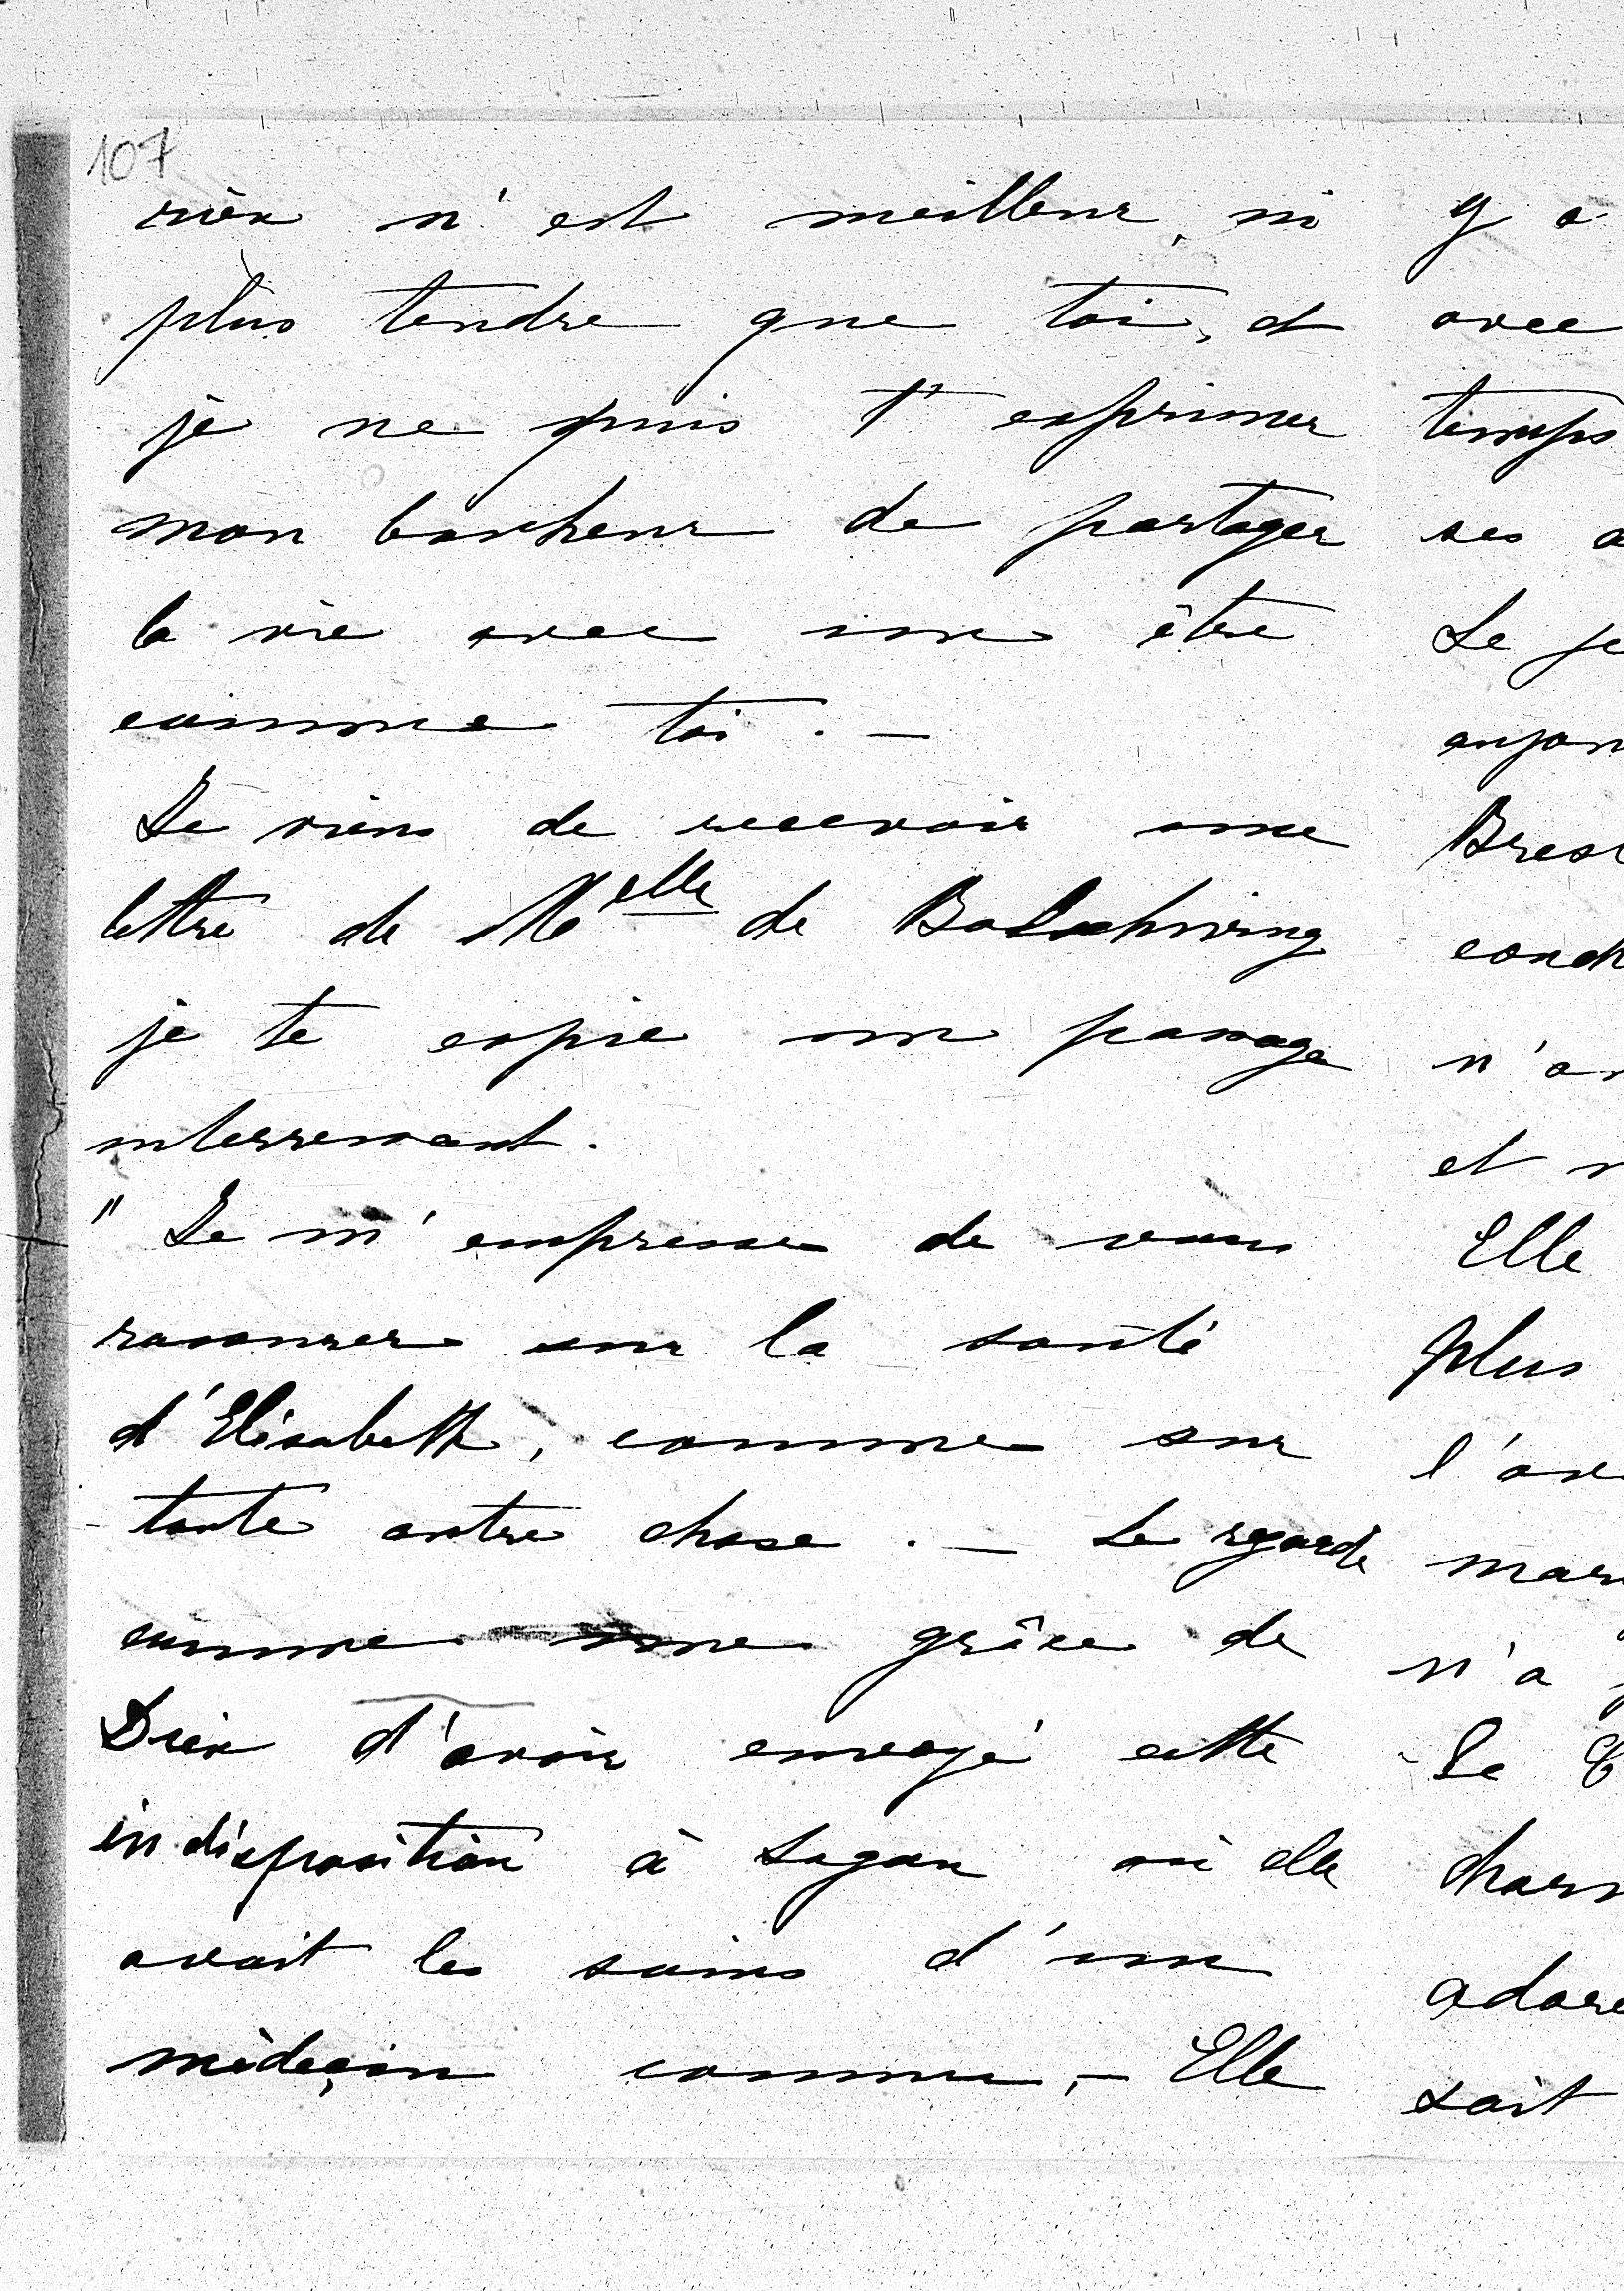 107
rien n'est meilleur, ni
plus tendre que toi, et
je ne puis t'exprimer
mon bonheur de partager
la vie avec une être
comme toi. —
Je viens de recevoir une
lettre de Melle de
je te copie un passage
interressant.
" Je m'empresse de vous
rassurer sur la santé
d'Elisabeth, comme sur
toute autre chose. — Je regarde
comme une grâce de
Dieu d'avoir envoyé cette
indisposition à Sagan où elle
avait les soins d'un
médecin connu, — Elle
y a
avec
temps
ses
Le
Brest
n'a
et
Elle
plus
l'
n'a
Le
adore
sait